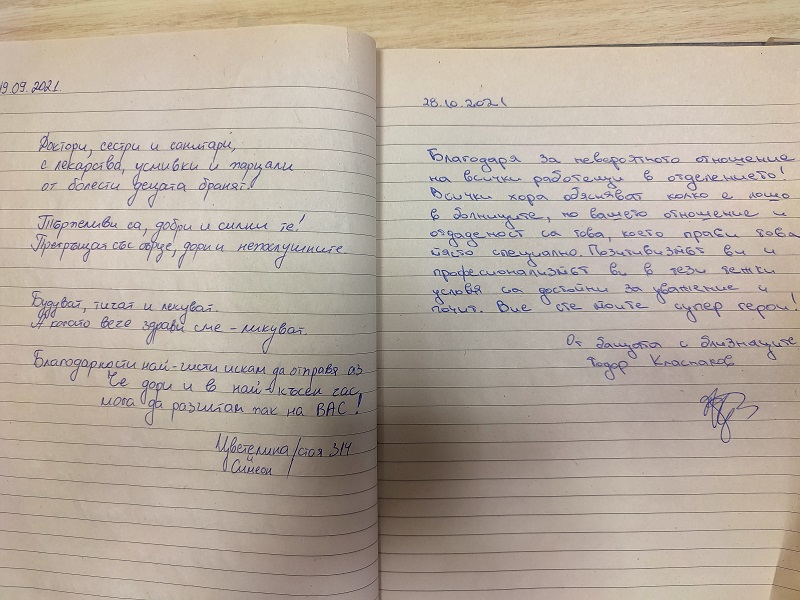 19.09.2021
Доктори, сестри и санитари,
с лекарства, усмивки и парцали
от болести децата бранят!
Търпеливи са, добри и силни те!
Прегръщат със сърце, дори и непослушните.
Будуват, тичат и лекуват.
А когато вече здрави сме - ликуват.
Благодарности най-чисти искам да отправя аз
Че дори и в най-късен час,
мога да разчитам пак на ВАС!
Цветелина/стая 314
Симеон
28.10.2021
Благодаря за невероятното отношение
на всички работещи в отделението!
Всички хора обясняват колко е лошо
в болниците, но вашето отношение и
отдаденост са това, което прави това
място специално. Позитивизмът ви и
професионализмът ви в тези тежки
условя са достойни за уважение и
почит. Вие сте моите супер герои!
От бащата с близнаците
Тодор